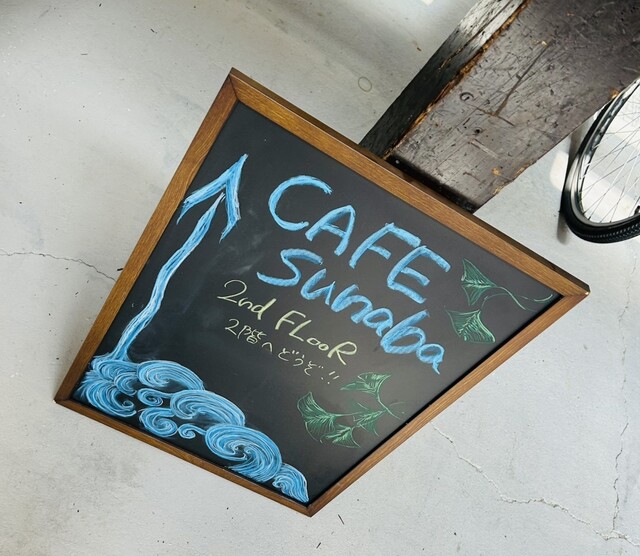 CAFE
Sunaba
2nd FLooR
2階へどうぞ!!